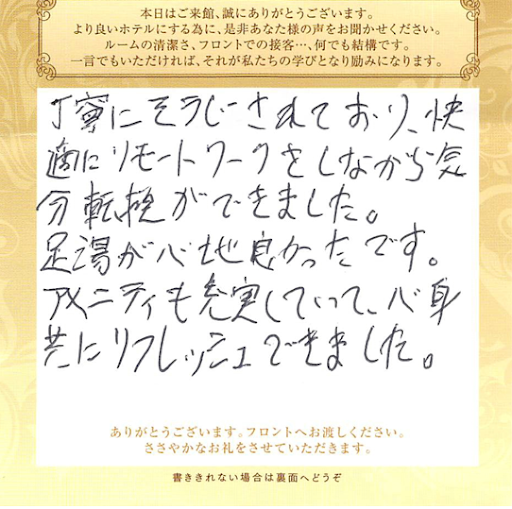 本日はご来館、誠にありがとうございます。
より良いホテルにする為に、是非あなた様の声をお聞かせください。
ルームの清潔さ、フロントでの接客…、何でも結構です。
一言でもいただければ、それが私たちの学びとなり励みになります。
丁寧にそうじされており、快
適にリモートワークをしながら気
分転換ができました。
足湯が心地良かったです。
アメニティも充実していて、心身
共にリフレッシュできました。
ありがとうございます。フロントへお渡しください。
ささやかなお礼をさせていただきます。
書ききれない場合は裏面へどうぞ